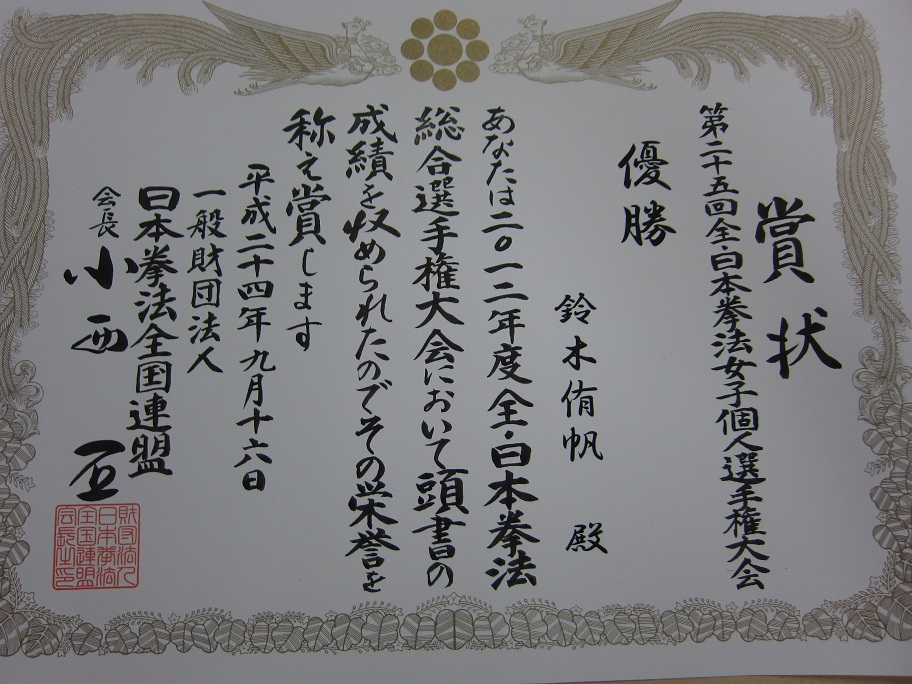 賞状
第二十五回全日本拳法女子個人選手権大会
優勝
鈴木侑帆 殿
あなたは二〇一二年度全日本拳法
総合選手権大会において頭書の
成績を収められたのでその栄誉を
称え賞します
平成二十四年九月十六日
一般財団法人
日本拳法全国連盟
会長